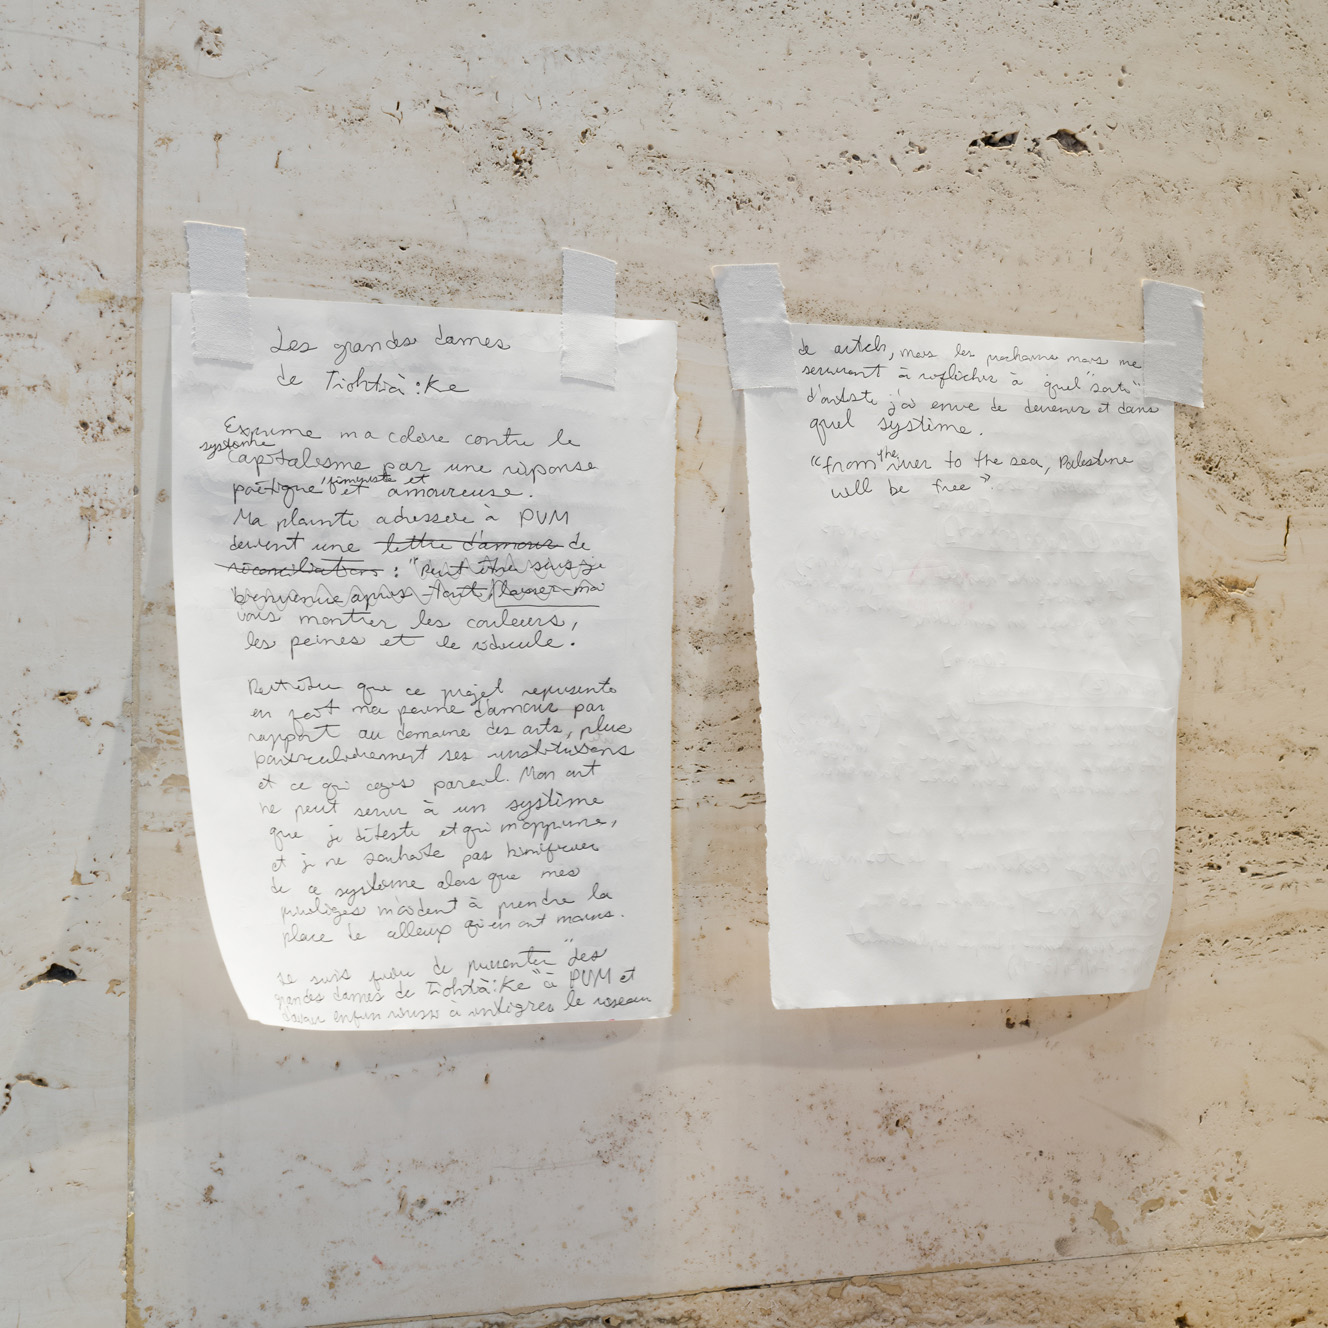 Les grandes dames
de Tiohtià:Ke
Exprime ma colère contre le
système
capitalisme par une réponse
poétique, féministe et et amoureuse.
Ma plainte adressée à PVM
devient une lettre d'amour de
réconciliations : "Peut être suis-je
bienvenue après tout, laissez-moi
vous montrer les couleurs,
les peines et le ridicule.
Peut-être que ce projet représente
en fait ma peine d'amour par
rapport au domaine des arts, plus
particulièrement ses institutions
et ce qui pareil. Mon art
ne peut servir à un système
que je déteste et qui m'opprime,
et je ne souhaite pas bénificier
de ce système alors que mes
privilèges m'aident à prendre la
place de celleux qui en ont moins.
Je suis fière de présenter "Les
grandes dames de Tiohtià:Ke" à PVM et
d'avoir enfin réussi à intégrer le réseau
de artch, mais les prochains mois me
serviront à réfléchir à quel "sorte"
d'artiste j'ai envie de devenir et dans
quel système.
"from the river to the sea, Palestine
will be free"